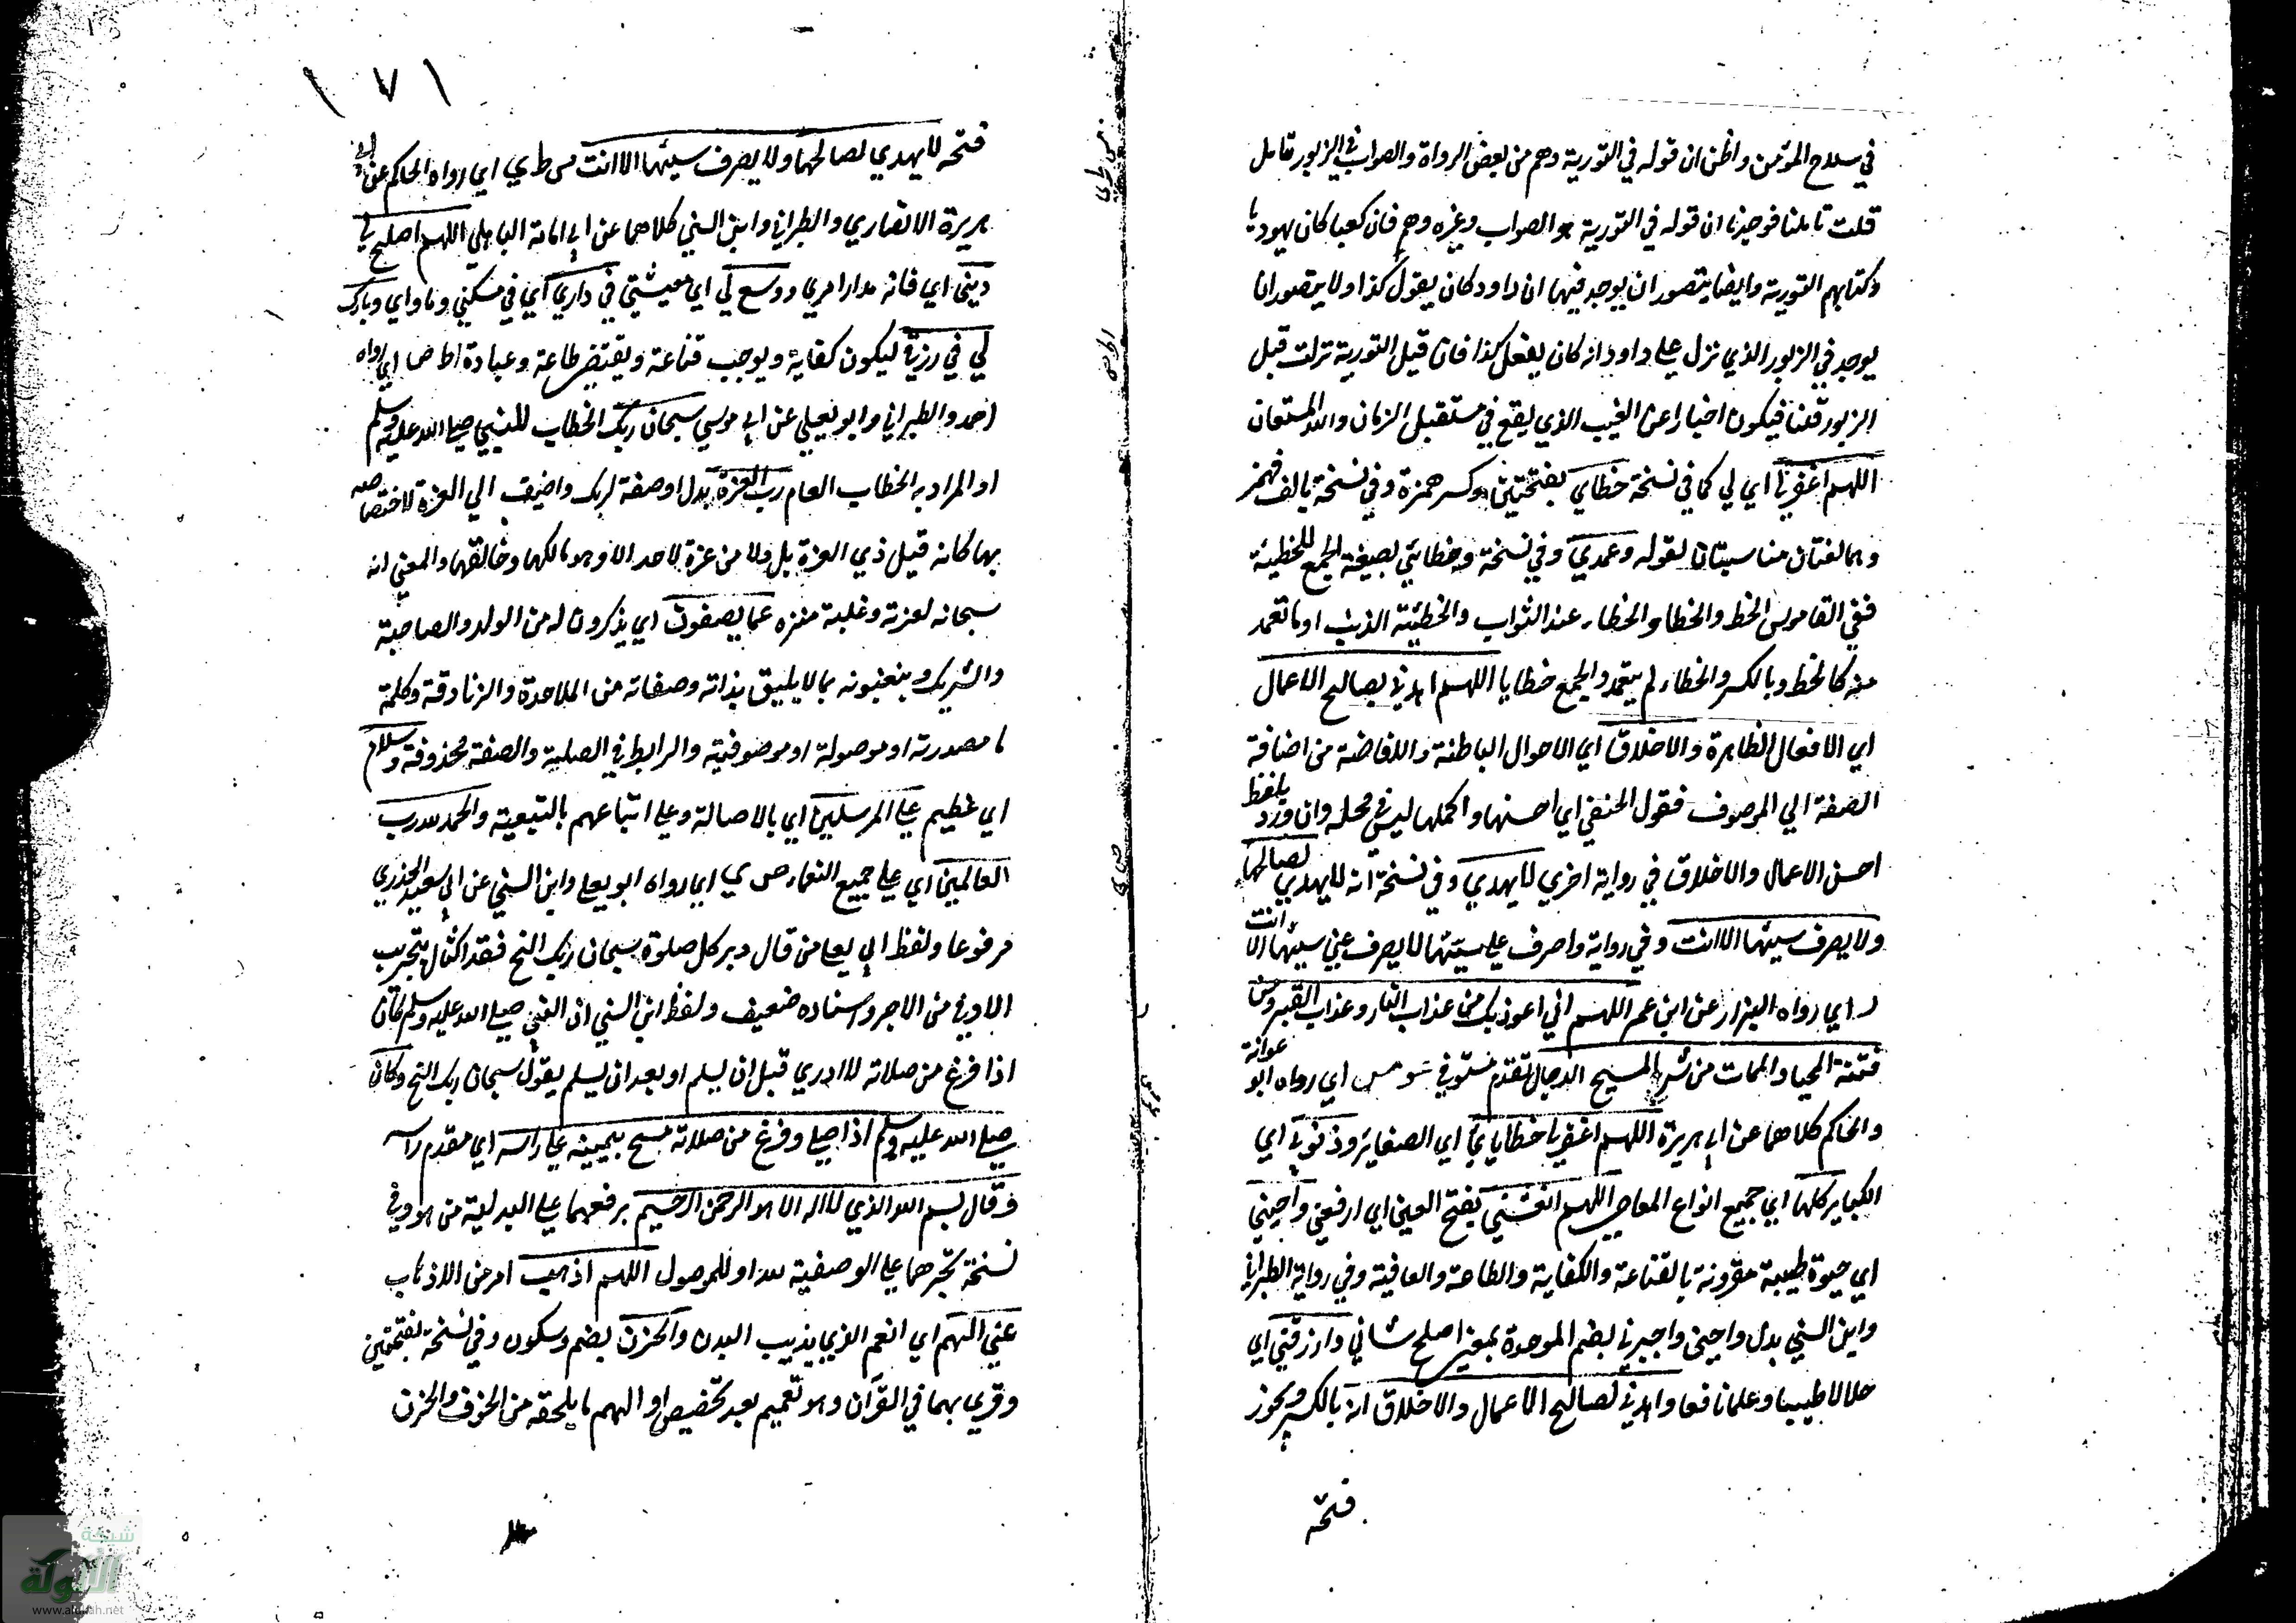 في سلاح المؤمن واظن ان قوله في التورية وهم من بعض الرواة والصواب في الزبور تامل
قلت تاملنا فوجدنا ان قوله في التورية هو الصواب وغيره وهم فان كعبا كان يهوديا
وكتابهم التورية وايضا يتصور ان يوجد فيها ان داود كان يقول كذا ولا يتصور ان
يوجد في الزبور الذي نزل علي داود انه كان يفعل كذا فان قيل التورية نزلت قبل
الزبور قلنا فيكون اخبارا عن الغيب الذي يقع في مستقبل الزمان والله المستعان
اللهم اغفر لي اي لي كما في نسخة خطاي بفتحتين وكسر همزة وفي نسخة بالف فهمز
وهما لغتان مناسبتان لقوله وعمدي وفي نسخة وخطائي بصيغة الجمع للخطيئة
ففي القاموس الخط والخطا والخطاء عند الثواب والخطيئة الذنب او ما تعمد
منه كالخط وبالكسر والخطاء لم يتعمد والجمع خطايا اللهم اهدني لصالح الاعمال
اي الافعال الظاهرة والاخلاق اي الاحوال الباطنة والاضافة من اضافة
الصفة الي الموصوف فقول الحنفي اي احسنها واكملها ليس في محله وان ورد بلفظ
احسن الاعمال والاخلاق في رواية اخري لا يهدي وفي نسخة انه لا يهدي لصالحها
ولا يصرف سيئها الا انت وفي رواية واصرف علي سيئها لا يصرف عني سيئها الا انت
ر اي رواه البزار عن ابن عمر اللهم اني اعوذ بك من عذاب النار وعذاب القبر ومن
فتنة المحيا والممات من شر المسيح الدجال تقدم مستوفي عو مس اي رواه ابو عوانة
والحاكم كلاهما عن ابي هريرة اللهم اغفر لي خطاياي اي الصغاير وذنوبي اي
الكباير كلها اي جميع انواع المعاصي اللهم انعشني بفتح العين اي ارفعني واحيني
اي حيوة طيبة مقرونة بالقناعة والكفاية والطاعة والعافية وفي رواية الطبراني
وابن السني بدل واحيني واجبرني بضم الموحدة بمعني اصلح شاني وارزقني اي
حلالا طيبا وعلما نافعا واهدني لصالح الاعمال والاخلاق انه بالكسر ويجوز
فتحه
١٧١
فتحه لا يهدي لصالحها ولا يصرف سيئها الا انت مس ط ي اي رواه الحاكم عن ابي
هريرة الانصاري والطبراني وابن السني كلاهما عن ابي امامة الباهلي اللهم اصلح لي
ديني اي فانه مدار امري ووسع لي اي معيشتي في داري اي في مسكني وماواي وبارك
لي في رزقي ليكون كفاية ويوجب قناعة ويقتضي طاعة وعبادة ا ط ص اي رواه
احمد والطبراني وابو يعلي عن ابي موسي سبحان ربك الخطاب للنبي صلي الله عليه وسلم
او المراد به الخطاب العام رب العزة بدل او صفة لربك واضيف الي العزة لاختصاصه
بها كانه قيل ذي العزة بل ولا من عزة لاحد الا وهو مالكها وخالقها والمعني انه
سبحانه لعزته وغلبته منزه عما يصفون اي يذكرون له من الولد والصاحبة
والشريك وينعتونه بما لا يليق بذاته وصفاته من الملاحدة والزنادقة وكلمة
ما مصدرية او موصولة او موصوفية والرابط في الصلة والصفة محذوفة وسلام
اي عظيم علي المرسلين اي بالاصالة وعلي اتباعهم بالتبعية والحمد لله رب
العالمين اي علي جميع النعماء ص ي اي رواه ابو يعلي وابن السني عن ابي سعيد الخدري
مرفوعا ولفظ ابي يعلي من قال دبر كل صلوة سبحان ربك الخ فقد اكتال بالجريب
الاوفي من الاجر واسناده ضعيف ولفظ ابن السني ان النبي صلي الله عليه وسلم كان
اذا فرغ من صلاته لا ادري قبل ان يسلم او بعد ان يسلم يقول سبحان ربك الخ وكان
صلي الله عليه وسلم اذا صلي وفرغ من صلاته مسح بيمينه علي راسه اي مقدم راسه
وقال بسم الله الذي لا اله الا هو الرحمن الرحيم برفعهما علي البدلية من هو وفي
نسخة بجرهما علي الوصفية لله او للموصول اللهم اذهب امر من الاذهاب
عني الهم اي الغم الذي يذيب البدن والحزن بضم وسكون وفي نسخة بفتحتين
وقري بهما في القرآن وهو تعميم بعد تخصيص او الهم ما يلحقه من الخوف والحزن
مس ط ي
ا ط ص
ص ي
شبكة
الألوكة
www.alukah.net